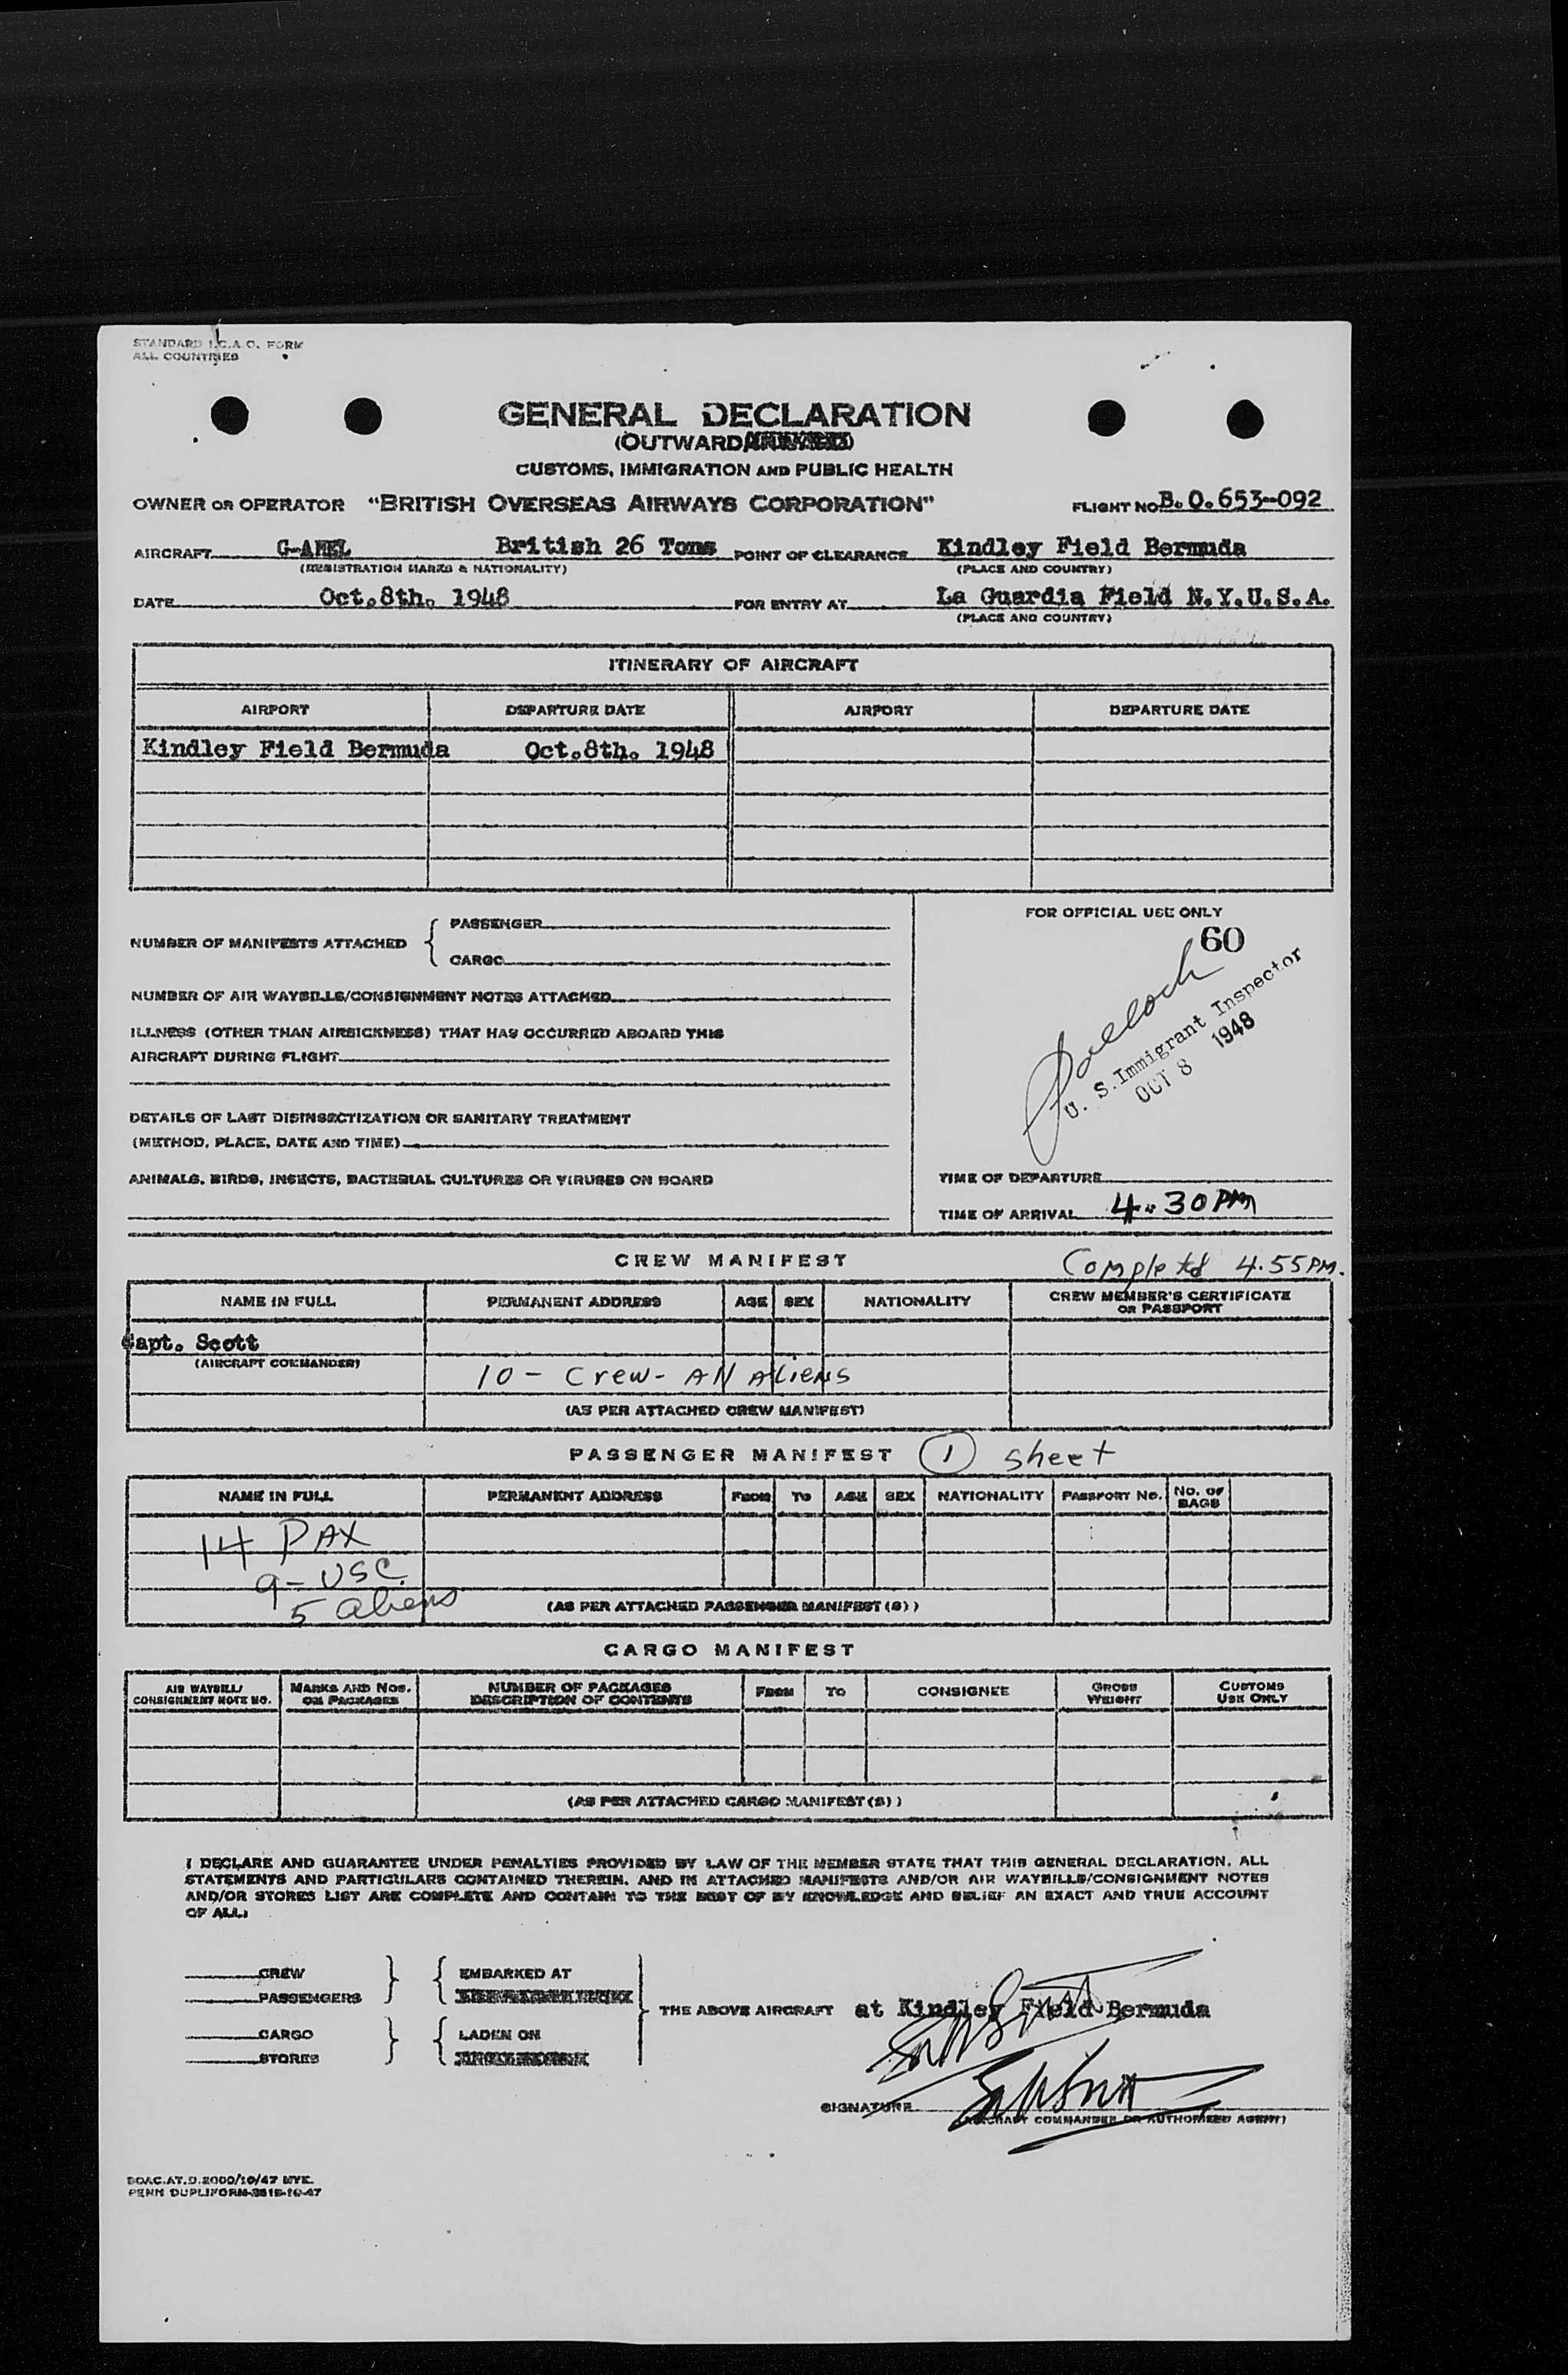 STANDARD I.C.A.O. FORM
ALL COUNTRIES
GENERAL DECLARATION
(OUTWARD)
CUSTOMS, IMMIGRATION AND PUBLIC HEALTH
OWNER OR OPERATOR "BRITISH OVERSEAS AIRWAYS CORPORATION" FLIGHT NO. B.O.653-092
AIRCRAFT British 26 Tons POINT OF CLEARANCE Kindley Field Bermuda
(REGISTRATION MARKS & NATIONALITY) (PLACE AND COUNTRY)
DATE Oct.8th. 1948 FOR ENTRY AT La Guardia Field N.Y.U.S.A.
(PLACE AND COUNTRY)
ITINERARY OF AIRCRAFT
AIRPORT DEPARTURE DATE AIRPORT DEPARTURE DATE
Kindley Field Bermuda Oct.8th. 1948
NUMBER OF MANIFESTS ATTACHED
PASSENGER
CARGO
NUMBER OF AIR WAYBILLS/CONSIGNMENT NOTES ATTACHED
ILLNESS (OTHER THAN AIRSICKNESS) THAT HAS OCCURRED ABOARD THIS
AIRCRAFT DURING FLIGHT
DETAILS OF LAST DISINSECTIZATION OR SANITARY TREATMENT
(METHOD, PLACE, DATE AND TIME)
ANIMALS, BIRDS, INSECTS, BACTERIAL CULTURES OR VIRUSES ON BOARD
FOR OFFICIAL USE ONLY
60
U. S. Immigrant Inspector
OCT 8 1948
TIME OF DEPARTURE
TIME OF ARRIVAL 4.30 PM
CREW MANIFEST
Completed 4.55 PM.
NAME IN FULL PERMANENT ADDRESS AGE SEX NATIONALITY CREW MEMBER'S CERTIFICATE
OR PASSPORT
Capt. Scott
(AIRCRAFT COMMANDER)
10 - Crew - All Aliens
(AS PER ATTACHED CREW MANIFEST)
PASSENGER MANIFEST 1 sheet
NAME IN FULL PERMANENT ADDRESS FROM TO AGE SEX NATIONALITY PASSPORT NO. NO. OF
BAGS
14 PAX
9 - USC.
5 aliens
(AS PER ATTACHED PASSENGER MANIFEST(S))
CARGO MANIFEST
AIR WAYBILL/
CONSIGNMENT NOTE NO. MARKS AND NOS.
ON PACKAGES NUMBER OF PACKAGES
DESCRIPTION OF CONTENTS FROM TO CONSIGNEE GROSS
WEIGHT CUSTOMS
USE ONLY
(AS PER ATTACHED CARGO MANIFEST(S))
I DECLARE AND GUARANTEE UNDER PENALTIES PROVIDED BY LAW OF THE MEMBER STATE THAT THIS GENERAL DECLARATION, ALL
STATEMENTS AND PARTICULARS CONTAINED THEREIN, AND IN ATTACHED MANIFESTS AND/OR AIR WAYBILLS/CONSIGNMENT NOTES
AND/OR STORES LIST ARE COMPLETE AND CONTAIN TO THE BEST OF MY KNOWLEDGE AND BELIEF AN EXACT AND TRUE ACCOUNT
OF ALL:
CREW
PASSENGERS
CARGO
STORES
EMBARKED AT
LADEN ON
THE ABOVE AIRCRAFT at Kindley Field Bermuda
SIGNATURE
(AIRCRAFT COMMANDER OR AUTHORIZED AGENT)
BOAC.AT.D.2000/10/47 NYK.